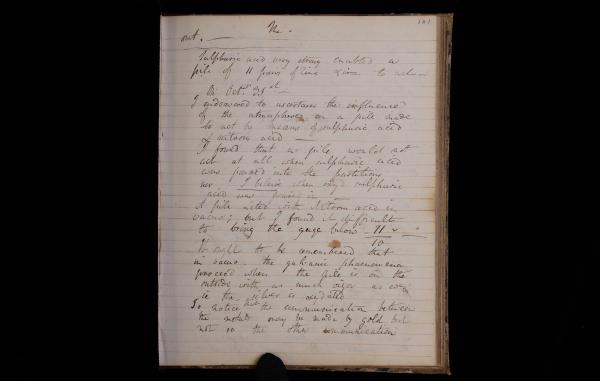 out. —
Sulphuric acid very strong enabled a
pile of 11 pairs of zinc & to act —
On Oct.r 31st —
I endeavored to ascertain the influence
of the atmosphere on a pile made
to act by means of sulphuric acid
& nitrous acid —
I found that a pile would not
act at all when sulphuric acid
was poured into the partitions
nor I believe when oxyd sulphuric
acid was poured in
A pile acted with Nitrous acid in
vacuo; but I found it difficult
to bring the gage below 11
10
It ought to be remembered that
in vacuo the galvanic phaenomena
proceed when the pile is on the
outside with as much vigor as ever
ie the silver is oxydated
To notice that the communication between
the metals may be made by gold but
not so the other communication